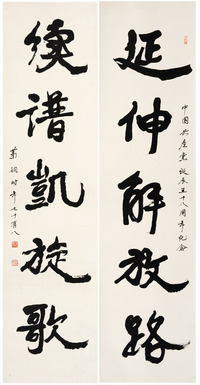 延伸解放路
中国共产党诞辰五十八周年纪念
续谱凯旋歌
时年七十有八